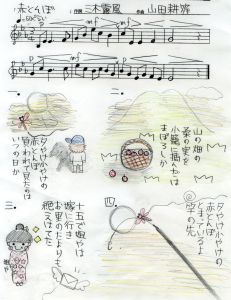 赤とんぼ 作詞 三木露風 作曲 山田耕筰
p mf
p mf p
一、
夕やけこやけの
赤とんぼ
負われて見たのは
いつの日か
二、
山の畑の
桑の実を
小籠に摘んだは
まぼろしか
三、
十五で姐やは
嫁に行き
お里のたよりも
絶えはてた
四、
夕やけこやけの
赤とんぼ
とまっているよ
竿の先